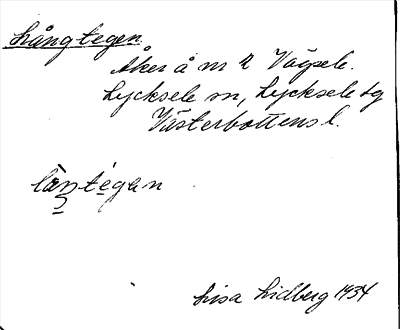 Långtegen
Åker å nr 2 Vägsele.
Lycksele sn, Lycksele tg
Västerbottens l.
làŋtégan
Lisa Lidberg 1934